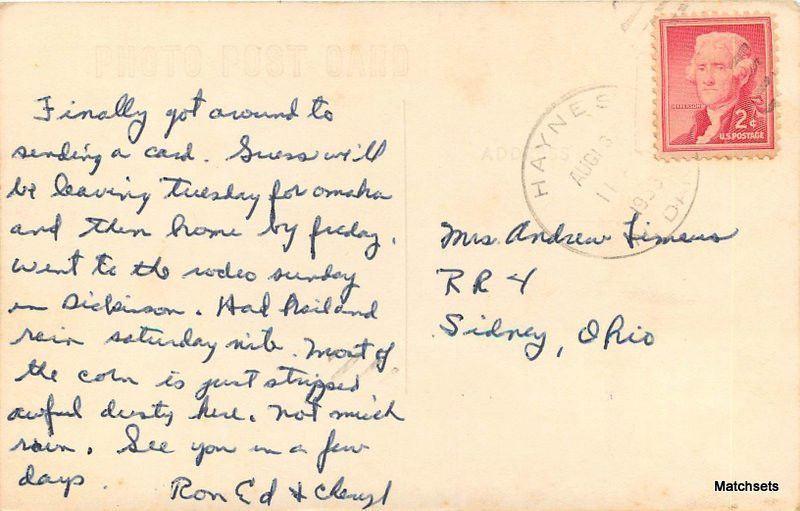 PHOTO POST CARD
Finally got around to
sending a card. Guess we'll
be leaving Tuesday for omaha
and then home by friday.
Went to the rodeo sunday
in Dickinson. Had hail and
rain saturday nite. Most of
the corn is just stripped
awful dusty here. not much
rain. See you in a few
days.
Ron Ed & Cheryl
ADDRESS
HAYNES
AUG 8
11
195
DAK
JEFFERSON
2¢
U.S. POSTAGE
Mrs. Andrew
RR 4
Sidney, Ohio
Matchsets